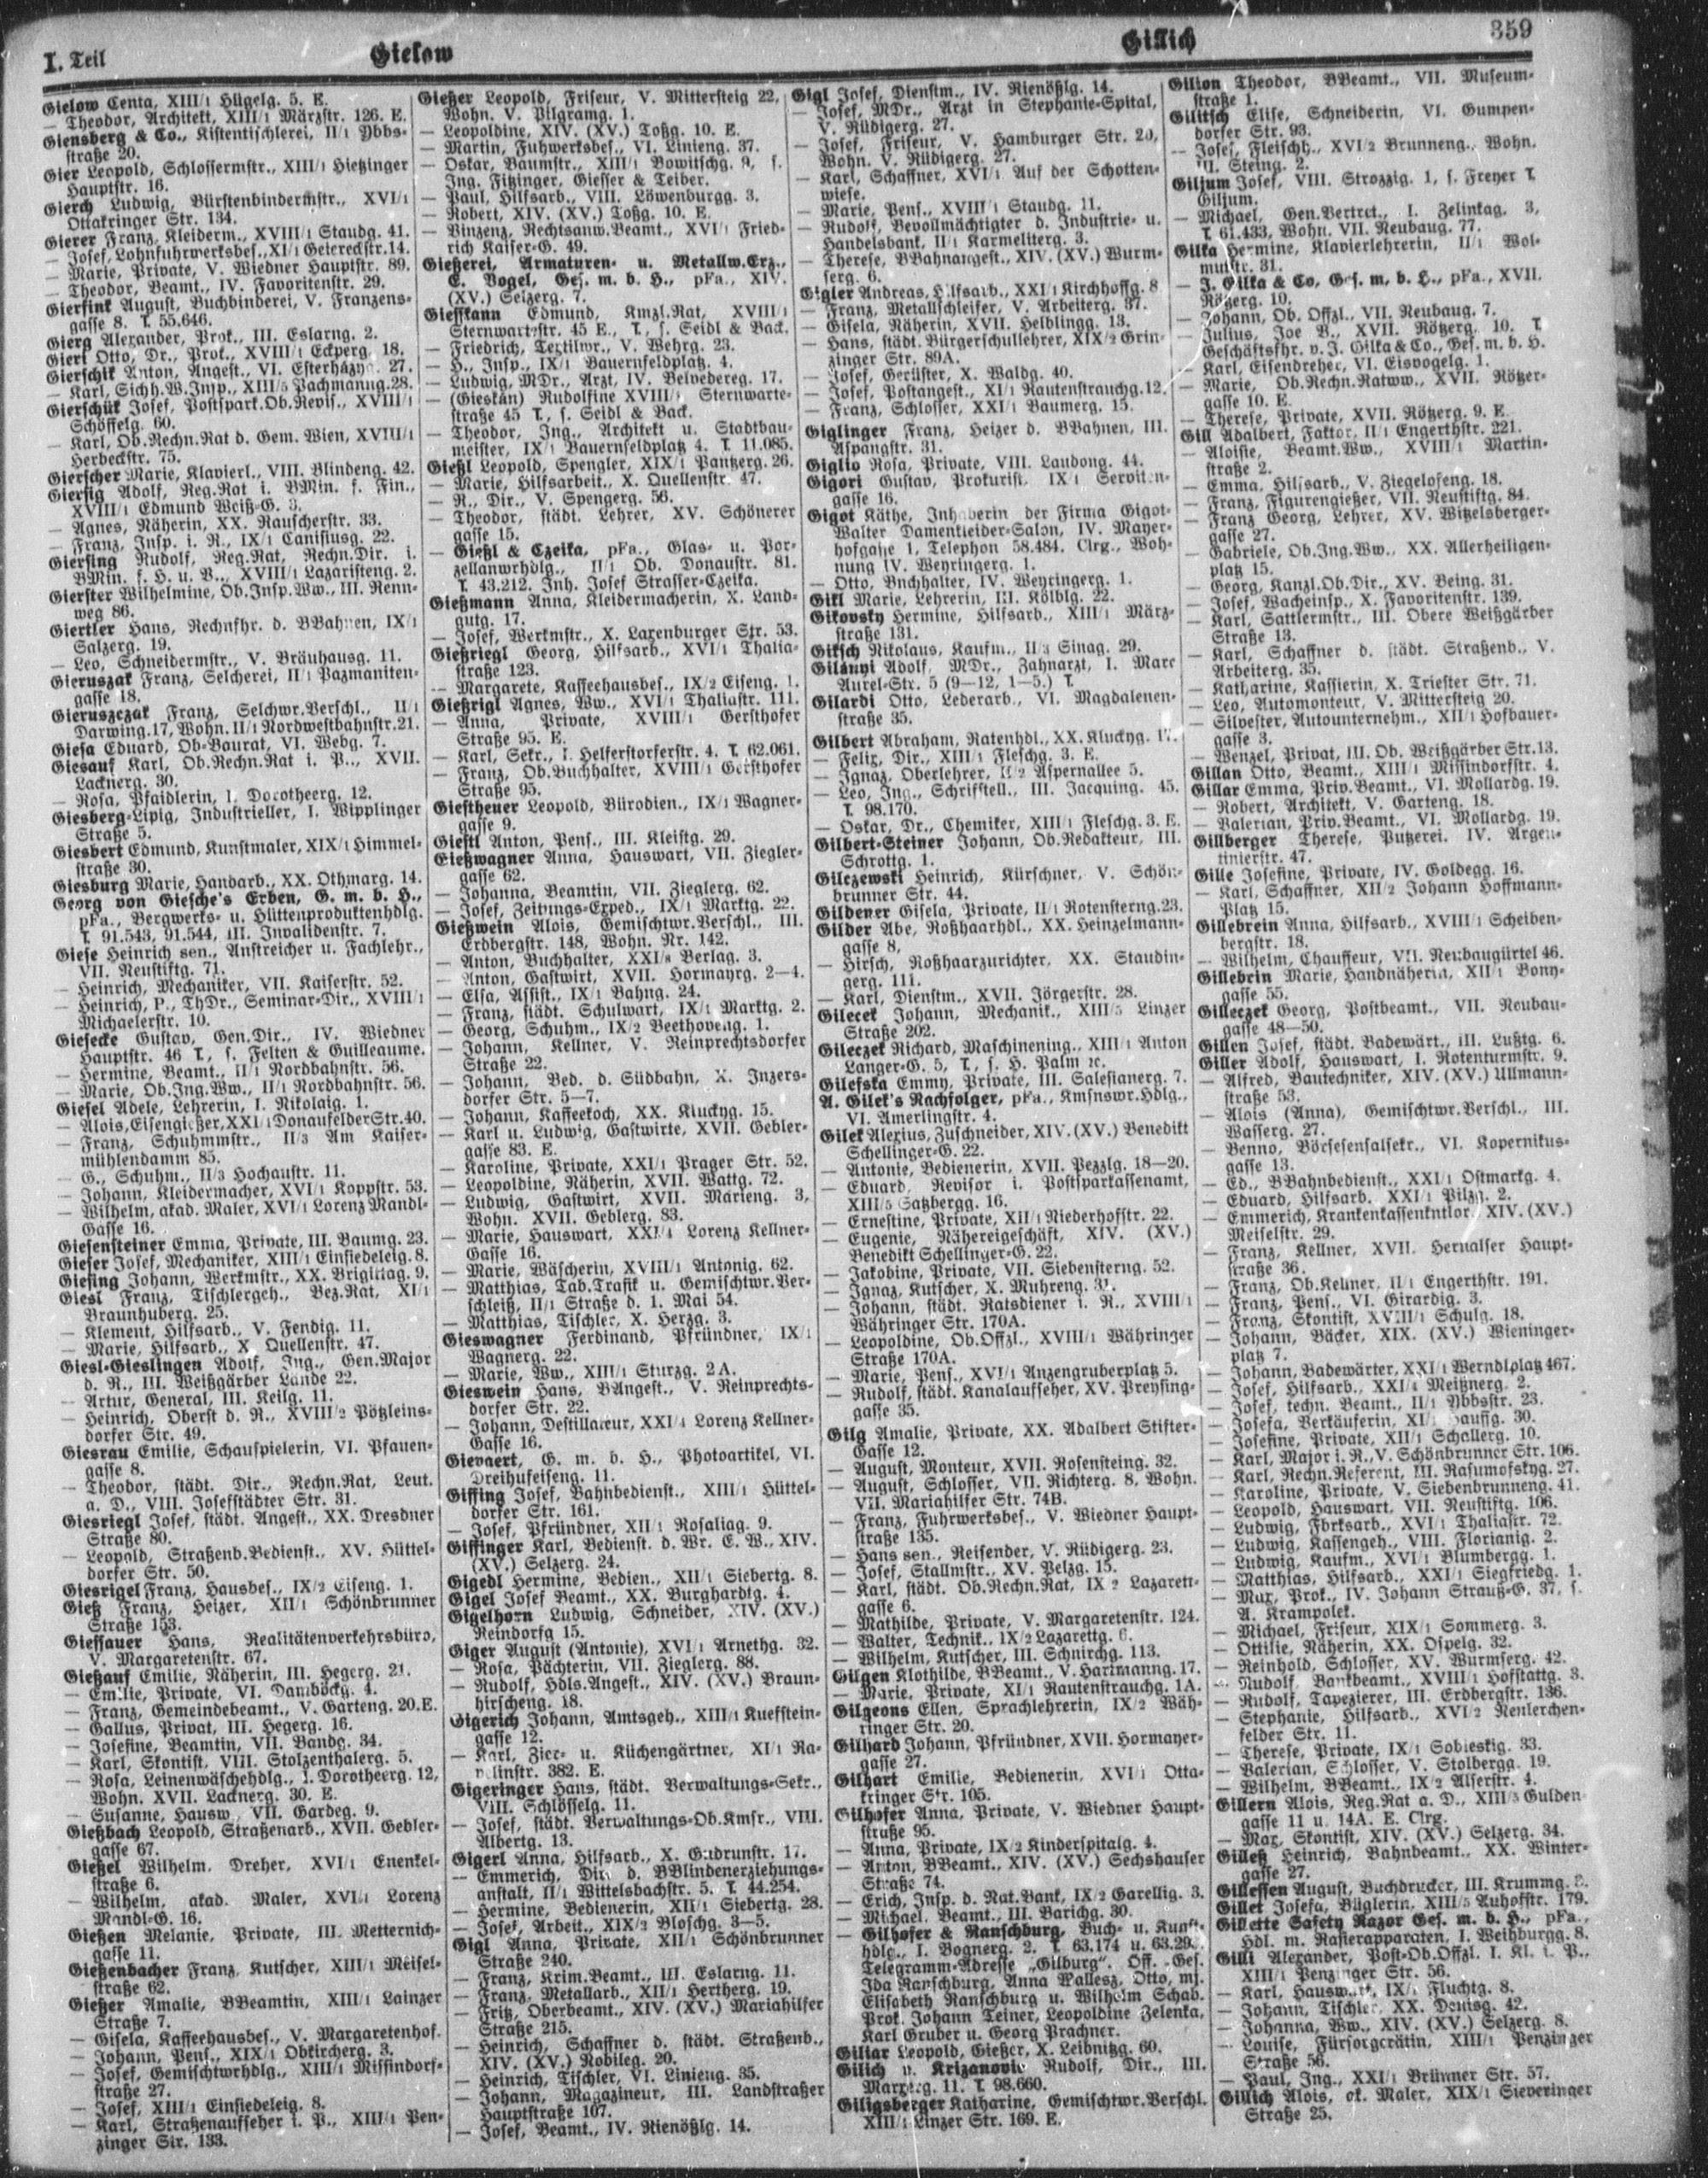 I. Teil
Gielow
Gillich
359
Gielow Centa, XIII/1 Hügelg. 5. E.
— Theodor, Architekt, XIII/1 Märzstr. 126. E.
Giensberg & Co., Kistentischlerei, II/1 Ybbs-
straße 20.
Gier Leopold, Schlossermstr., XIII/1 Hietzinger
Hauptstr. 16.
Gierch Ludwig, Bürstenbindermstr., XVI/1
Ottakringer Str. 134.
Gierer Franz, Kleiderm., XVIII/1 Staudg. 41.
— Josef, Lohnfuhrwerksbes., XI/1 Geiereckstr. 14.
— Marie, Private, V. Wiedner Hauptstr. 89.
— Theodor, Beamt., IV. Favoritenstr. 29.
Giersink August, Buchbinderei, V. Franzens-
gasse 8. T. 55.646.
Gierg Alexander, Prok., III. Eslarng. 2.
Gierl Otto, Dr., Prok., XVIII/1 Eckperg. 18.
Gierschik Anton, Angest., VI. Esterházyg. 27.
— Karl, Sichh.W.Insp., XIII/5 Bachmanng. 28.
Gierschük Josef, Postspark.Ob.Revis., XVIII/1
Schöffelg. 60.
— Karl, Ob.Rechn.Rat d. Gem. Wien, XVIII/1
Herbeckstr. 75.
Gierscher Marie, Klavierl., VIII. Blindeng. 42.
Giersig Adolf, Reg.Rat i. BMin. f. Fin.,
XVIII/1 Edmund Weiß-G. 3.
— Agnes, Näherin, XX. Rauscherstr. 33.
— Franz, Insp. i. R., IX/1 Canisiusg. 22.
Giersing Rudolf, Reg.Rat, Rechn.Dir. i.
BMin. f. H. u. V., XVIII/1 Lazaristeng. 2.
Gierster Wilhelmine, Ob.Insp.Ww., III. Renn-
weg 86.
Giertler Hans, Rechnfhr. d. BBahnen, IX/1
Salzerg. 19.
— Leo, Schneidermstr., V. Bräuhausg. 11.
Gieruszak Franz, Selcherei, II/1 Pazmaniten-
gasse 18.
Gieruszczak Franz, Selchwr.Verschl., II/1
Darwing. 17, Wohn. II/1 Nordwestbahnstr. 21.
Giesa Eduard, Ob-Baurat, VI. Webg. 7.
Giesauf Karl, Ob.Rechn.Rat i. P., XVII.
Lacknerg. 30.
— Rosa, Pfaidlerin, I. Dorotheerg. 12.
Giesberg-Lipig, Industrieller, I. Wipplinger
Straße 5.
Giesbert Edmund, Kunstmaler, XIX/1 Himmel-
straße 30.
Giesburg Marie, Handarb., XX. Othmarg. 14.
Georg von Giesche's Erben, G. m. b. H.,
pFa., Bergwerks- u. Hüttenproduktenhdlg.
T. 91.543, 91.544, III. Invalidenstr. 7.
Giese Heinrich sen., Anstreicher u. Fachlehr.,
VII. Neustiftg. 71.
— Heinrich, Mechaniker, VII. Kaiserstr. 52.
— Heinrich, P., ThDr., Seminar-Dir., XVIII/1
Michaelerstr. 10.
Giesecke Gustav, Gen.Dir., IV. Wiedner
Hauptstr. 46 T., s. Felten & Guilleaume.
— Hermine, Beamt., II/1 Nordbahnstr. 56.
— Marie, Ob.Ing.Ww., II/1 Nordbahnstr. 56.
Giesel Adele, Lehrerin, I. Nikolaig. 1.
— Alois, Eisengießer, XXI/1 Donaufelder Str. 40.
— Franz, Schuhmmstr., II/3 Am Kaiser-
mühlendamm 85.
— G., Schuhm., II/3 Hochaustr. 11.
— Johann, Kleidermacher, XVI/1 Koppstr. 53.
— Wilhelm, akad. Maler, XVI/1 Lorenz Mandl-
Gasse 16.
Giesensteiner Emma, Private, III. Baumg. 23.
Gieser Josef, Mechaniker, XIII/1 Einsiedeleig. 8.
Giesing Johann, Werkmstr., XX. Brigittag. 9.
Giesl Franz, Tischlergeh., Bez.Rat, XI/1
Braunhuberg. 25.
— Klement, Hilfsarb., V. Fendig. 11.
— Marie, Hilfsarb., X. Quellenstr. 47.
Giesl-Gieslingen Adolf, Ing., Gen.Major
d. R., III. Weißgärber Lände 22.
— Artur, General, III. Keilg. 11.
— Heinrich, Oberst d. R., XVIII/2 Pötzleins-
dorfer Str. 49.
Giesrau Emilie, Schauspielerin, VI. Pfauen-
gasse 8.
— Theodor, städt. Dir., Rechn.Rat, Leut.
a. D., VIII. Josefstädter Str. 31.
Giesriegl Josef, städt. Angest., XX. Dresdner
Straße 80.
— Leopold, Straßenb.Bedienst., XV. Hüttel-
dorfer Str. 50.
Giesrigel Franz, Hausbes., IX/2 Eiseng. 1.
Gieß Franz, Heizer, XII/1 Schönbrunner
Straße 153.
Giessauer Hans, Realitätenverkehrsbüro,
V. Margaretenstr. 67.
Gießauf Emilie, Näherin, III. Hegerg. 21.
— Emilie, Private, VI. Damböckg. 4.
— Franz, Gemeindebeamt., V. Garteng. 20. E.
— Gallus, Privat, III. Hegerg. 16.
— Josefine, Beamtin, VII. Bandg. 34.
— Karl, Skontist, VIII. Stolzenthalerg. 5.
— Rosa, Leinenwäschehdlg., I. Dorotheerg. 12,
Wohn. XVII. Lacknerg. 30. E.
— Susanne, Hausw., VII. Gardeg. 9.
Gießbach Leopold, Straßenarb., XVII. Gebler-
gasse 67.
Gießel Wilhelm, Dreher, XVI/1 Enenkel-
straße 6.
— Wilhelm, akad. Maler, XVI/1 Lorenz
Mandl-G. 16.
Gießen Melanie, Private, III. Metternich-
gasse 11.
Gießenbacher Franz, Kutscher, XIII/1 Meisel-
straße 62.
Gießer Amalie, BBeamtin, XIII/1 Lainzer
Straße 7.
— Gisela, Kaffeehausbes., V. Margaretenhof.
— Johann, Pens., XIX/1 Obkircherg. 3.
— Josef, Gemischtwrhdlg., XIII/1 Missindorf-
straße 27.
— Josef, XIII/1 Einsiedeleig. 8.
— Karl, Straßenaufseher i. P., XIII/1 Pen-
zinger Str. 133.
Gießer Leopold, Friseur, V. Mittersteig 22,
Wohn. V. Pilgramg. 1.
— Leopoldine, XIV. (XV.) Toßg. 10. E.
— Martin, Fuhwerksbes., VI. Linieng. 37.
— Oskar, Baumstr., XIII/1 Bowitschg. 9, s.
Ing. Fitzinger, Giesser & Teiber.
— Paul, Hilfsarb., VIII. Löwenburgg. 3.
— Robert, XIV. (XV.) Toßg. 10. E.
— Vinzenz, Rechtsanw.Beamt., XVI/1 Fried-
rich Kaiser-G. 49.
Gießerei, Armaturen- u. Metallw.Erz.,
C. Vogel, Ges. m. b. H., pFa., XIV.
(XV.) Selzerg. 7.
Giesskann Edmund, Kmzl.Rat, XVIII/1
Sternwartestr. 45 E., T., s. Seidl & Back.
— Friedrich, Textilwr., V. Wehrg. 23.
— H., Insp., IX/1 Bauernfeldplatz 4.
— Ludwig, MDr., Arzt, IV. Belvedereg. 17.
— (Gieskan) Rudolfine XVIII/1 Sternwarte-
straße 45 T., s. Seidl & Back.
— Theodor, Ing., Architekt u. Stadtbau-
meister, IX/1 Bauernfeldplatz 4. T. 11.085.
Gießl Leopold, Spengler, XIX/1 Pantzerg. 26.
— Marie, Hilfsarbeit., X. Quellenstr. 47.
— R., Dir., V. Spengerg. 56.
— Theodor, städt. Lehrer, XV. Schönerer
gasse 15.
— Gießl & Czeika, pFa., Glas- u. Por-
zellanwrhdlg., II/1 Ob. Donaustr. 81.
T. 43.212. Inh. Josef Strasser-Czeika.
Gießmann Anna, Kleidermacherin, X. Land-
gutg. 17.
— Josef, Werkmstr., X. Laxenburger Str. 53.
Gießriegl Georg, Hilfsarb., XVI/1 Thalia-
straße 123.
— Margarete, Kaffeehausbes., IX/2 Eiseng. 1.
Gießrigl Agnes, Ww., XVI/1 Thaliastr. 111.
— Anna, Private, XVIII/1 Gersthofer
Straße 95. E.
— Karl, Sekr., I. Helferstorferstr. 4. T. 62.061.
— Franz, Ob.Buchhalter, XVIII/1 Gersthofer
Straße 95.
Giestheuer Leopold, Bürodien., IX/1 Wagner-
gasse 9.
Giestl Anton, Pens., III. Kleistg. 29.
Gießwagner Anna, Hauswart, VII. Ziegler-
gasse 62.
— Johanna, Beamtin, VII. Zieglerg. 62.
— Josef, Zeitungs-Exped., IX/1 Marktg. 22.
Gießwein Alois, Gemischtwr.Verschl., III.
Erdbergstr. 148, Wohn. Nr. 142.
— Anton, Buchhalter, Verlag. 3.
— Anton, Gastwirt, XVII. Hormayrg. 2—4.
— Elsa, Assist., IX/1 Bahng. 24.
— Franz, städt. Schulwart, IX/1 Marktg. 2.
— Georg, Schuhm., IX/2 Beethoveng. 1.
— Johann, Kellner, V. Reinprechtsdorfer
Straße 22.
— Johann, Bed. d. Südbahn, X. Inzers-
dorfer Str. 5—7.
— Johann, Kaffeekoch, XX. Kluckyg. 15.
— Karl u. Ludwig, Gastwirte, XVII. Gebler-
gasse 83. E.
— Karoline, Private, XXI/1 Prager Str. 52.
— Leopoldine, Näherin, XVII. Wattg. 72.
— Ludwig, Gastwirt, XVII. Marieng. 3,
Wohn. XVII. Geblerg. 83.
— Marie, Hauswart, XXI/4 Lorenz Kellner-
Gasse 16.
— Marie, Wäscherin, XVIII/1 Antonig. 62.
— Matthias, Tab.Trafik u. Gemischtwr.Ver-
schleiß, II/1 Straße d. 1. Mai 54.
— Matthias, Tischler, X. Herzg. 3.
Gieswagner Ferdinand, Pfründner, IX/1
Wagnerg. 22.
— Marie, Ww., XIII/1 Sturzg. 2 A.
Gieswein Hans, BAngest., V. Reinprechts-
dorfer Str. 22.
— Johann, Destillateur, XXI/4 Lorenz Kellner-
Gasse 16.
Gievaert, G. m. b. H., Photoartikel, VI.
Dreihufeiseng. 11.
Giffing Josef, Bahnbedienst., XIII/1 Hüttel-
dorfer Str. 161.
— Josef, Pfründner, XII/1 Rosaliag. 9.
Giffinger Karl, Bedienst. d. Wr. E. W., XIV.
(XV.) Selzerg. 24.
Gigedl Hermine, Bedien., XII/1 Siebertg. 8.
Gigel Josef Beamt., XX. Burghardtg. 4.
Gigelhorn Ludwig, Schneider, XIV. (XV.)
Reindorfg 15.
Giger August (Antonie), XVI/1 Arnethg. 32.
— Rosa, Pächterin, VII. Zieglerg. 88.
— Rudolf, Hdls.Angest., XIV. (XV.) Braun-
hirscheng. 18.
Gigerich Johann, Amtsgeh., XIII/1 Kuefstein-
gasse 12.
— Karl, Zier- u. Küchengärtner, XI/1 Ra-
velinstr. 382. E.
Gigeringer Hans, städt. Verwaltungs-Sekr.,
VIII. Schlösselg. 11.
— Josef, städt. Verwaltungs-Ob.Kmsr., VIII.
Albertg. 13.
Gigerl Anna, Hilfsarb., X. Gudrunstr. 17.
— Emmerich, Dir. d. BBlindenerziehungs-
anstalt, II/1 Wittelsbachstr. 5. T. 44.254.
— Hermine, Bedienerin, XII/1 Siebertg. 28.
— Josef, Arbeit., XIX/2 Bloschg. 3—5.
Gigl Anna, Private, XII/1 Schönbrunner
Straße 240.
— Franz, Krim.Beamt., III. Eslarng. 11.
— Franz, Metallarb., XII/1 Hertherg. 19.
— Fritz, Oberbeamt., XIV. (XV.) Mariahilfer
Straße 215.
— Heinrich, Schaffner d. städt. Straßenb.,
XIV. (XV.) Nobileg. 20.
— Heinrich, Tischler, VI. Linieng. 35.
— Johann, Magazineur, III. Landstraßer
Hauptstraße 107.
— Josef, Beamt., IV. Rienößlg. 14.
Gigl Josef, Dienstm., IV. Rienößlg. 14.
— Josef, MDr., Arzt in Stephanie-Spital,
V. Rüdigerg. 27.
— Josef, Friseur, V. Hamburger Str. 20,
Wohn. V. Rüdigerg. 27.
— Karl, Schaffner, XVI/1 Auf der Schotten-
wiese.
— Marie, Pens., XVIII/1 Staudg. 11.
— Rudolf, Bevollmächtigter d. Industrie- u.
Handelsbank, II/1 Karmeliterg. 3.
— Therese, BBahnangest., XIV. (XV.) Wurm-
serg. 6.
Gigler Andreas, Hilfsarb., XXI/1 Kirchhoffg. 8
— Franz, Metallschleifer, V. Arbeiterg. 37.
— Gisela, Näherin, XVII. Helblingg. 13.
— Hans, städt. Bürgerschullehrer, XIX/2 Grin-
zinger Str. 89A.
— Josef, Gerüster, X. Waldg. 40.
— Josef, Postangest., XI/1 Rautenstrauchg. 12.
— Franz, Schlosser, XXI/1 Baumerg. 15.
Giglinger Franz, Heizer d. BBahnen, III.
Aspangstr. 31.
Giglio Rosa, Private, VIII. Laudong. 44.
Gigori Gustav, Prokurist, IX/1 Serviten-
gasse 16.
Gigot Käthe, Inhaberin der Firma Gigot-
Walter Damenkleider-Salon, IV. Mayer-
hofgasse 1, Telephon 58.484. Clrg., Woh-
nung IV. Weyringerg. 1.
— Otto, Buchhalter, IV. Weyringerg. 1.
Gikl Marie, Lehrerin, III. Kölblg. 22.
Gikovsky Hermine, Hilfsarb., XIII/1 März-
straße 131.
Giksch Nikolaus, Kaufm., II/3 Sinag. 29.
Gilányi Adolf, MDr., Zahnarzt, I. Marc
Aurel-Str. 5 (9—12, 1—5.) T.
Gilardi Otto, Lederarb., VI. Magdalenen-
straße 35.
Gilbert Abraham, Ratenhdl., XX. Kluckyg. 17.
— Felix, Dir., XIII/1 Fleschg. 3. E.
— Ignaz, Oberlehrer, II/2 Aspernallee 5.
— Leo, Ing., Schriftstell., III. Jacquing. 45.
T. 98.170.
— Oskar, Dr., Chemiker, XIII/1 Fleschg. 3. E.
Gilbert-Steiner Johann, Ob.Redakteur, III.
Schrottg. 1.
Gilczewski Heinrich, Kürschner, V. Schön-
brunner Str. 44.
Gildener Gisela, Private, II/1 Rotensterng. 23.
Gilder Abe, Roßhaarhdl., XX. Heinzelmann-
gasse 8,
— Hirsch, Roßhaarzurichter, XX. Staudin-
gerg. 111.
— Karl, Dienstm., XVII. Jörgerstr. 28.
Gilecek Johann, Mechanik., XIII/5 Linzer
Straße 202.
Gileczek Richard, Maschinening., XIII/1 Anton
Langer-G. 5, T., s. H. Palm ꝛc.
Gilefska Emmy, Private, III. Salesianerg. 7.
A. Gilek's Nachfolger, pFa., Kmsnswr.Hdlg.,
VI. Amerlingstr. 4.
Gilek Alexius, Zuschneider, XIV. (XV.) Benedikt
Schellinger-G. 22.
— Antonie, Bedienerin, XVII. Pezzlg. 18—20.
— Eduard, Revisor i. Postsparkassenamt,
XIII/5 Satzbergg. 16.
— Ernestine, Private, XII/1 Niederhofstr. 22.
— Eugenie, Nähereigeschäft, XIV. (XV.)
Benedikt Schellinger-G. 22.
— Jakobine, Private, VII. Siebensterng. 52.
— Ignaz, Kutscher, X. Muhreng. 31.
— Johann, städt. Ratsdiener i. R., XVIII/1
Währinger Str. 170A.
— Leopoldine, Ob.Offzl., XVIII/1 Währinger
Straße 170A.
— Marie, Pens., XVI/1 Anzengruberplatz 5.
— Rudolf, städt. Kanalaufseher, XV. Preysing-
gasse 35.
Gilg Amalie, Private, XX. Adalbert Stifter-
Gasse 12.
— August, Monteur, XVII. Rosensteing. 32.
— August, Schlosser, VII. Richterg. 8, Wohn.
VII. Mariahilfer Str. 74B.
— Franz, Fuhrwerksbes., V. Wiedner Haupt-
straße 135.
— Hans sen., Reisender, V. Rüdigerg. 23.
— Josef, Stallmstr., XV. Pelzg. 15.
— Karl, städt. Ob.Rechn.Rat, IX/2 Lazarett-
gasse 6.
— Mathilde, Private, V. Margaretenstr. 124.
— Walter, Technik., IX/2 Lazarettg. 6.
— Wilhelm, Kutscher, III. Schnirchg. 113.
Gilgen Klothilde, BBeamt., V. Hartmanng. 17.
— Marie, Private, XI/1 Rautenstrauchg. 1A.
Gilgeons Ellen, Sprachlehrerin, IX/2 Wäh-
ringer Str. 20.
Gilhard Johann, Pfründner, XVII. Hormayer-
gasse 27.
Gilhart Emilie, Bedienerin, XVI/1 Otta-
kringer Str. 105.
Gilhofer Anna, Private, V. Wiedner Haupt-
straße 95.
— Anna, Private, IX/2 Kinderspitalg. 4.
— Anton, BBeamt., XIV. (XV.) Sechshauser
Straße 74.
— Erich, Insp. d. Nat.Bank, IX/2 Garellig. 3.
— Michael, Beamt., III. Barichg. 30.
— Gilhofer & Ranschburg, Buch- u. Kunst-
hdlg., I. Bognerg. 2. T. 63.174 u.
Telegramm-Adresse „Gilburg“. Off. Ges.
Ida Ranschburg, Anna Pallesz, Otto, mj.
Elisabeth Ranschburg u. Wilhelm Schab.
Prok. Johann Teiner, Leopoldine Zelenka,
Karl Gruber u. Georg Prachner.
Giliar Leopold, Gießer, X. Leibnitzg. 60.
Gilich v. Krizanovic Rudolf, Dir., III.
Marxerg. 11. T. 98.660.
Giligsberger Katharine, Gemischtwr.Verschl.
XIII/1 Linzer Str. 169. E.
Gilion Theodor, BBeamt., VII. Museum-
straße 1.
Gilitsch Elise, Schneiderin, VI. Gumpen-
dorfer Str. 93.
— Josef, Fleischh., XVI/2 Brunneng., Wohn.
Steing. 2.
Giljum Josef, VIII. Strozzig. 1, s. Freyer T
Giljum.
— Michael, Gen.Vertret., I. Zelinkag. 3,
T. 61.433, Wohn. VII. Neubaug. 77.
Gilka Hermine, Klavierlehrerin, II/1 Wol-
mutstr. 31.
— J. Gilka & Co, Ges. m. b. H., pFa., XVII.
Rötzerg. 10.
— Johann, Ob. Offzl., VII. Neubaug. 7.
— Julius, Joe B., XVII. Rötzerg. 10. T.
Geschäftsfhr. v. J. Gilka & Co., Ges. m. b. H.
— Karl, Eisendreher, VI. Eisvogelg. 1.
— Marie, Ob.Rechn.Ratww., XVII. Rötzer-
gasse 10. E.
— Therese, Private, XVII. Rötzerg. 9. E.
Gill Adalbert, Faktor, II/1 Engerthstr. 221.
— Aloisie, Beamt.Ww., XVIII/1 Martin-
straße 2.
— Emma, Hilfsarb., V. Ziegelofeng. 18.
— Franz, Figurengießer, VII. Neustiftg. 84.
— Franz Georg, Lehrer, XV. Witzelsberger-
gasse 27.
— Gabriele, Ob.Ing.Ww., XX. Allerheiligen-
platz 15.
— Georg, Kanzl.Ob.Dir., XV. Being. 31.
— Josef, Wacheinsp., X. Favoritenstr. 139.
— Karl, Sattlermstr., III. Obere Weißgärber
Straße 13.
— Karl, Schaffner d. städt. Straßenb., V.
Arbeiterg. 35.
— Katharine, Kassierin, X. Triester Str. 71.
— Leo, Automonteur, V. Mittersteig 20.
— Silvester, Autounternehm., XII/1 Hofbauer-
gasse 3.
— Wenzel, Privat, III. Ob. Weißgärber Str. 13.
Gillan Otto, Beamt., XIII/1 Missindorfstr. 4.
Gillar Emma, Priv.Beamt., VI. Mollardg. 19.
— Robert, Architekt, V. Garteng. 18.
— Valerian, Priv.Beamt., VI. Mollardg. 19.
Gillberger Therese, Putzerei, IV. Argen-
tinierstr. 47.
Gille Josefine, Private, IV. Goldegg. 16.
— Karl, Schaffner, XII/2 Johann Hoffmann-
Platz 15.
Gillebrein Anna, Hilfsarb., XVIII/1 Scheiben-
bergstr. 18.
— Wilhelm, Chauffeur, VII. Neubaugürtel 46.
Gillebrin Marie, Handnäherin, XII/1 Bony-
gasse 55.
Gilleczek Georg, Postbeamt., VII. Neubau-
gasse 48—50.
Gillen Josef, städt. Badewärt., III. Lußtg. 6.
Giller Adolf, Hauswart, I. Rotenturmstr. 9.
— Alfred, Bautechniker, XIV. (XV.) Ullmann-
straße 53.
— Alois (Anna), Gemischtwr.Verschl., III.
Wasserg. 27.
— Benno, Börsesensalsekr., VI. Kopernikus-
gasse 13.
— Ed., BBahnbedienst., XXI/1 Ostmarkg. 4.
— Eduard, Hilfsarb. XXI/1 Pilzg. 2.
— Emmerich, Krankenkassenkntlor, XIV. (XV.)
Meiselstr. 29.
— Franz, Kellner, XVII. Hernalser Haupt-
straße 36.
— Franz, Ob.Kellner, II/1 Engerthstr. 191.
— Franz, Pens., VI. Girardig. 3.
— Franz, Skontist, XVIII/1 Schulg. 18.
— Johann, Bäcker, XIX. (XV.) Wieninger-
platz 7.
— Johann, Badewärter, XXI/1 Werndlplatz 467.
— Josef, Hilfsarb., XXI/1 Meißnerg. 2.
— Josef, techn. Beamt., II/1 Ybbsstr. 23.
— Josefa, Verkäuferin, XI/1 Hauffg. 30.
— Josefine, Private, XII/1 Schallerg. 10.
— Karl, Major i. R., V. Schönbrunner Str. 106.
— Karl, Rechn.Referent, III. Rasumofskyg. 27.
— Karoline, Private, V. Siebenbrunneng. 41.
— Leopold, Hauswart, VII. Neustiftg. 106.
— Ludwig, Fbrksarb., XVI/1 Thaliastr. 72.
— Ludwig, Kassengeh., VIII. Florianig. 2.
— Ludwig, Kaufm., XVI/1 Blumbergg. 1.
— Matthias, Hilfsarb., XXI/1 Siegfriedg. 1.
— Max, Prok., IV. Johann Strauß-G. 37, s.
A. Krampolek.
— Michael, Friseur, XIX/1 Sommerg. 3.
— Ottilie, Näherin, XX. Ospelg. 32.
— Reinhold, Schlosser, XV. Wurmserg. 42.
— Rudolf, Bankbeamt., XVIII/1 Hofstattg. 3.
— Rudolf, Tapezierer, III. Erdbergstr. 136.
— Stephanie, Hilfsarb., XVI/2 Neulerchen-
felder Str. 11.
— Therese, Private, IX/1 Sobieskig. 33.
— Valerian, Schlosser, V. Stolbergg. 19.
— Wilhelm, BBeamt., IX/2 Alserstr. 4.
Gillern Alois, Reg.Rat a. D., XIII/5 Gulden-
gasse 11 u. 14A. E. Clrg.
— Max, Skontist, XIV. (XV.) Selzerg. 34.
Gilleß Heinrich, Bahnbeamt., XX. Winter-
gasse 27.
Gillessen August, Buchdrucker, III. Krummg.
Gillet Josefa, Büglerin, XIII/5 Auhofstr. 179.
Gillette Safety Razor Ges. m. b. H., pFa.,
Hdl. m. Rasierapparaten, I. Weihburgg. 8.
Gilli Alexander, Post-Ob.Offzl. I. Kl. i. P.,
XIII/1 Penzinger Str. 56.
— Karl, Hauswart, IX/1 Fluchtg. 8.
— Johann, Tischler, XX. Denisg. 42.
— Johanna, Ww., XIV. (XV.) Selzerg. 8.
— Louise, Fürsorgerätin, XIII/1 Penzinger
Straße 56.
— Paul, Ing., XXI/1 Brünner Str. 57.
Gillich Alois, ak. Maler, XIX/1 Sieveringer
Straße 25.